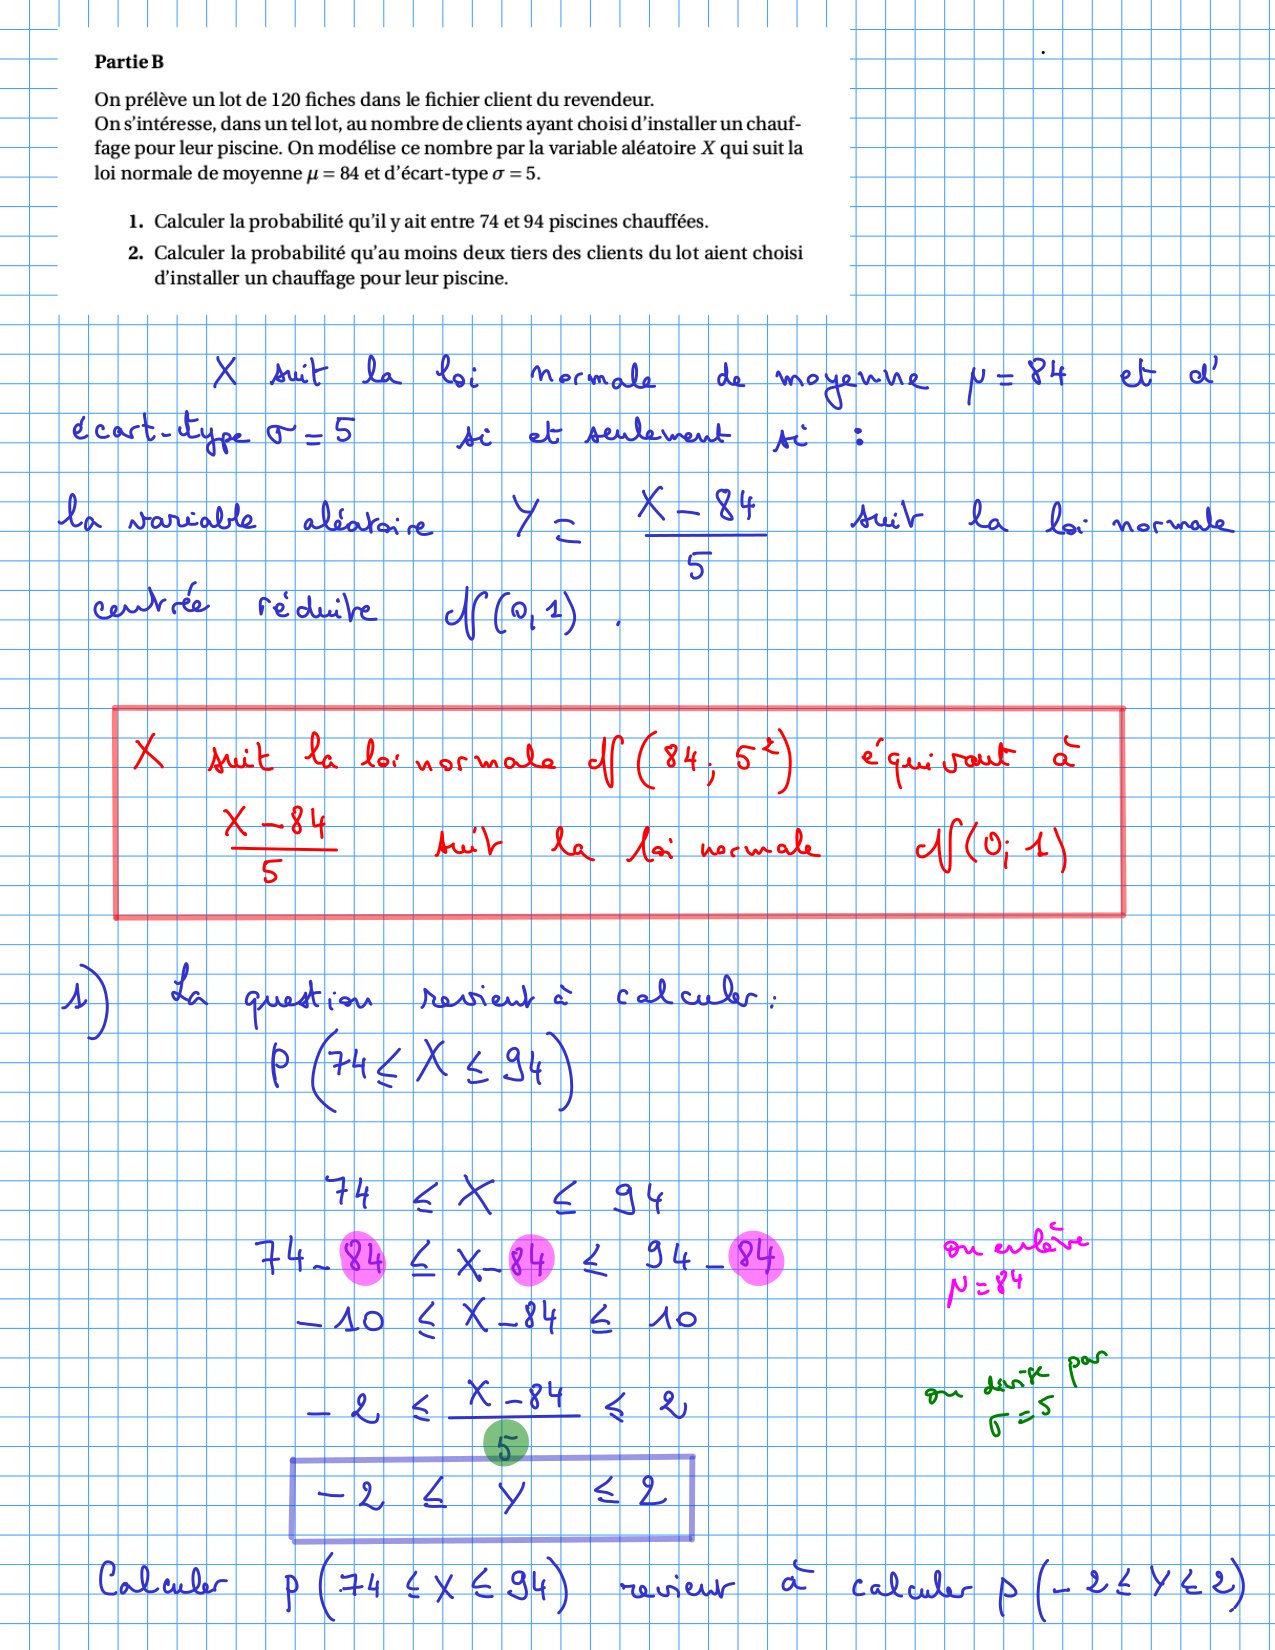 Partie B
On prélève un lot de 120 fiches dans le fichier client du revendeur.
On s'intéresse, dans un tel lot, au nombre de clients ayant choisi d'installer un chauf-
fage pour leur piscine. On modélise ce nombre par la variable aléatoire X qui suit la
loi normale de moyenne μ = 84 et d'écart-type σ = 5.
1. Calculer la probabilité qu'il y ait entre 74 et 94 piscines chauffées.
2. Calculer la probabilité qu'au moins deux tiers des clients du lot aient choisi
d'installer un chauffage pour leur piscine.
X suit la loi normale de moyenne μ = 84 et d'
écart-type σ = 5 si et seulement si :
la variable aléatoire Y = (X - 84)/5 suit la loi normale
centrée réduite N(0,1).
X suit la loi normale N(84; 5²) équivaut à
(X - 84)/5 suit la loi normale N(0; 1)
1) La question revient à calculer :
p(74 ≤ X ≤ 94)
74 ≤ X ≤ 94
74 - 84 ≤ X - 84 ≤ 94 - 84 on enlève
μ = 84
-10 ≤ X - 84 ≤ 10
-2 ≤ (X - 84)/5 ≤ 2 on divise par
σ = 5
-2 ≤ Y ≤ 2
Calculer p(74 ≤ X ≤ 94) revient à calculer p(-2 ≤ Y ≤ 2)